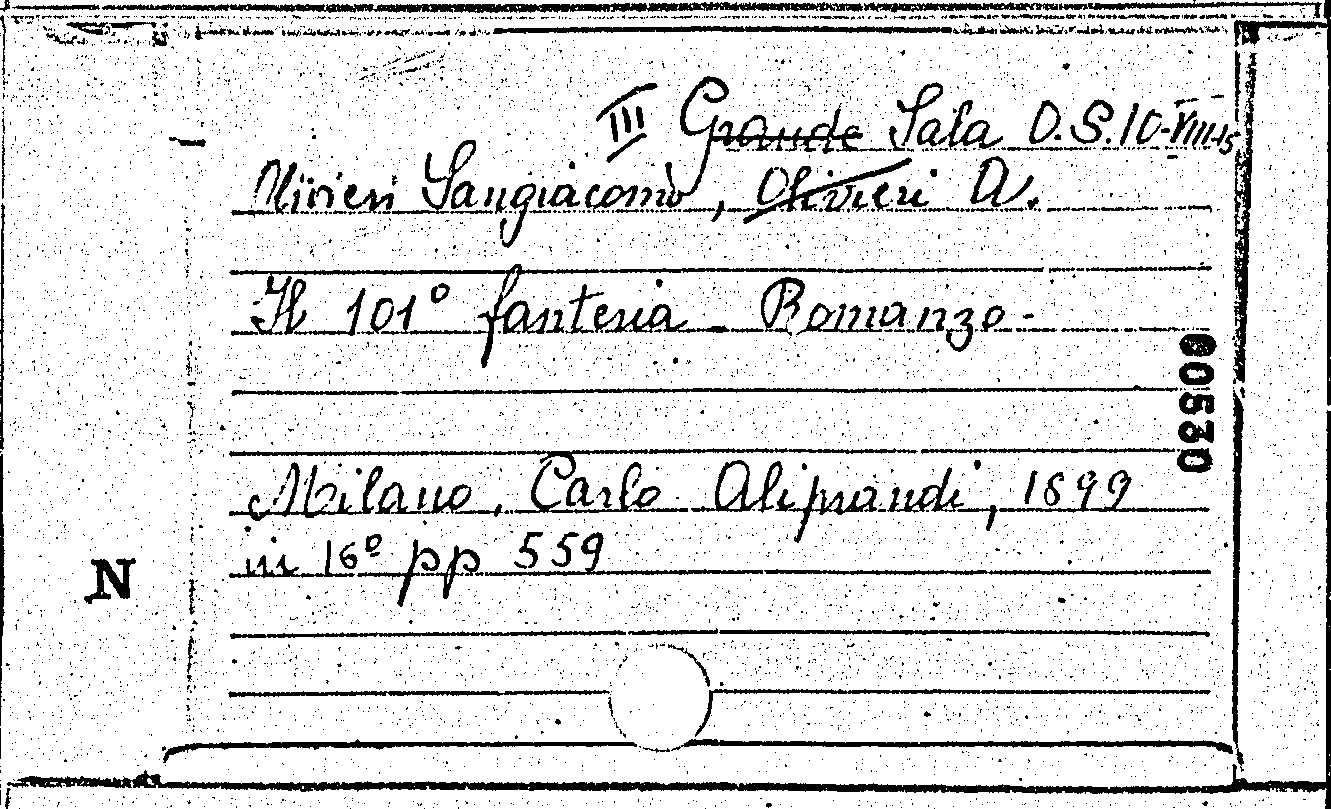 III Grande Sala O.S.10-VIII-15
Olivieri Sangiacomo, Olivieri A.
Il 101° fanteria - Romanzo -
00530
Milano, Carlo Aliprandi, 1899
in 16° pp 559
N